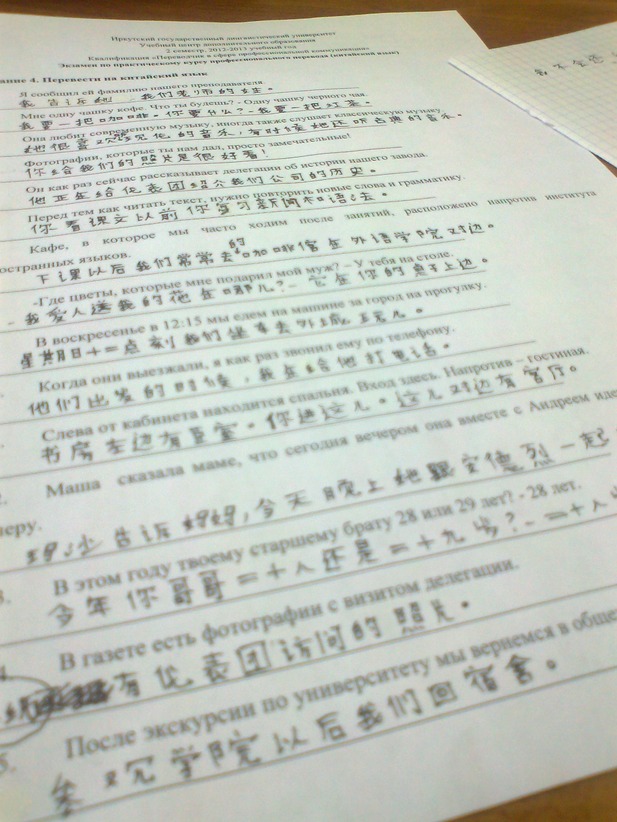 Иркутский государственный лингвистический университет
Учебный центр дополнительного образования
2 семестр, 2012-2013 учебный год
Квалификация «Переводчик в сфере профессиональной коммуникации»
Экзамен по практическому курсу профессионального перевода (китайский язык)
ание 4. Перевести на китайский язык
Я сообщил ей фамилию нашего преподавателя.
我告诉她 我们老师的姓。
Мне одну чашку кофе. Что ты будешь? - Одну чашку черного чая.
我要一把咖啡。你要什么?-我要一把红茶。
Она любит современную музыку, иногда также слушает классическую музыку.
她很喜欢现代的音乐,有时候她还听古典的音乐。
Фотографии, которые ты нам дал, просто замечательные!
你给我们的照片是很好看!
Он как раз сейчас рассказывает делегации об истории нашего завода.
他正在给代表团绍介我们公司的历史。
Перед тем как читать текст, нужно повторить новые слова и грамматику.
你看课文以前你复习新闻和语法。
Кафе, в которое мы часто ходим после занятий, расположено напротив института
остранных языков.
下课以后我们常常去的咖啡馆在外语学院对边。
-Где цветы, которые мне подарил мой муж? – У тебя на столе.
- 我爱人送我的花在哪儿?- 它在你的桌子上边。
В воскресенье в 12:15 мы едем на машине за город на прогулку.
星期日十二点刻我们坐车去外城玩儿。
Когда они выезжали, я как раз звонил ему по телефону.
他们出发的时候,我在给他打电话。
Слева от кабинета находится спальня. Вход здесь. Напротив – гостиная.
书房左边有卧室。你进这儿。这儿对边有客厅。
2. Маша сказала маме, что сегодня вечером она вместе с Андреем иде
неру.
玛沙告诉妈妈,今天晚上她跟安德烈一起
3. В этом году твоему старшему брату 28 или 29 лет? - 28 лет.
今年你哥哥二十八还是二十九岁?- 二十八
4. В газете есть фотографии с визитом делегации.
有代表团访问的照片。
5. После экскурсии по университету мы вернемся в обще
参观学院以后我们回宿舍。